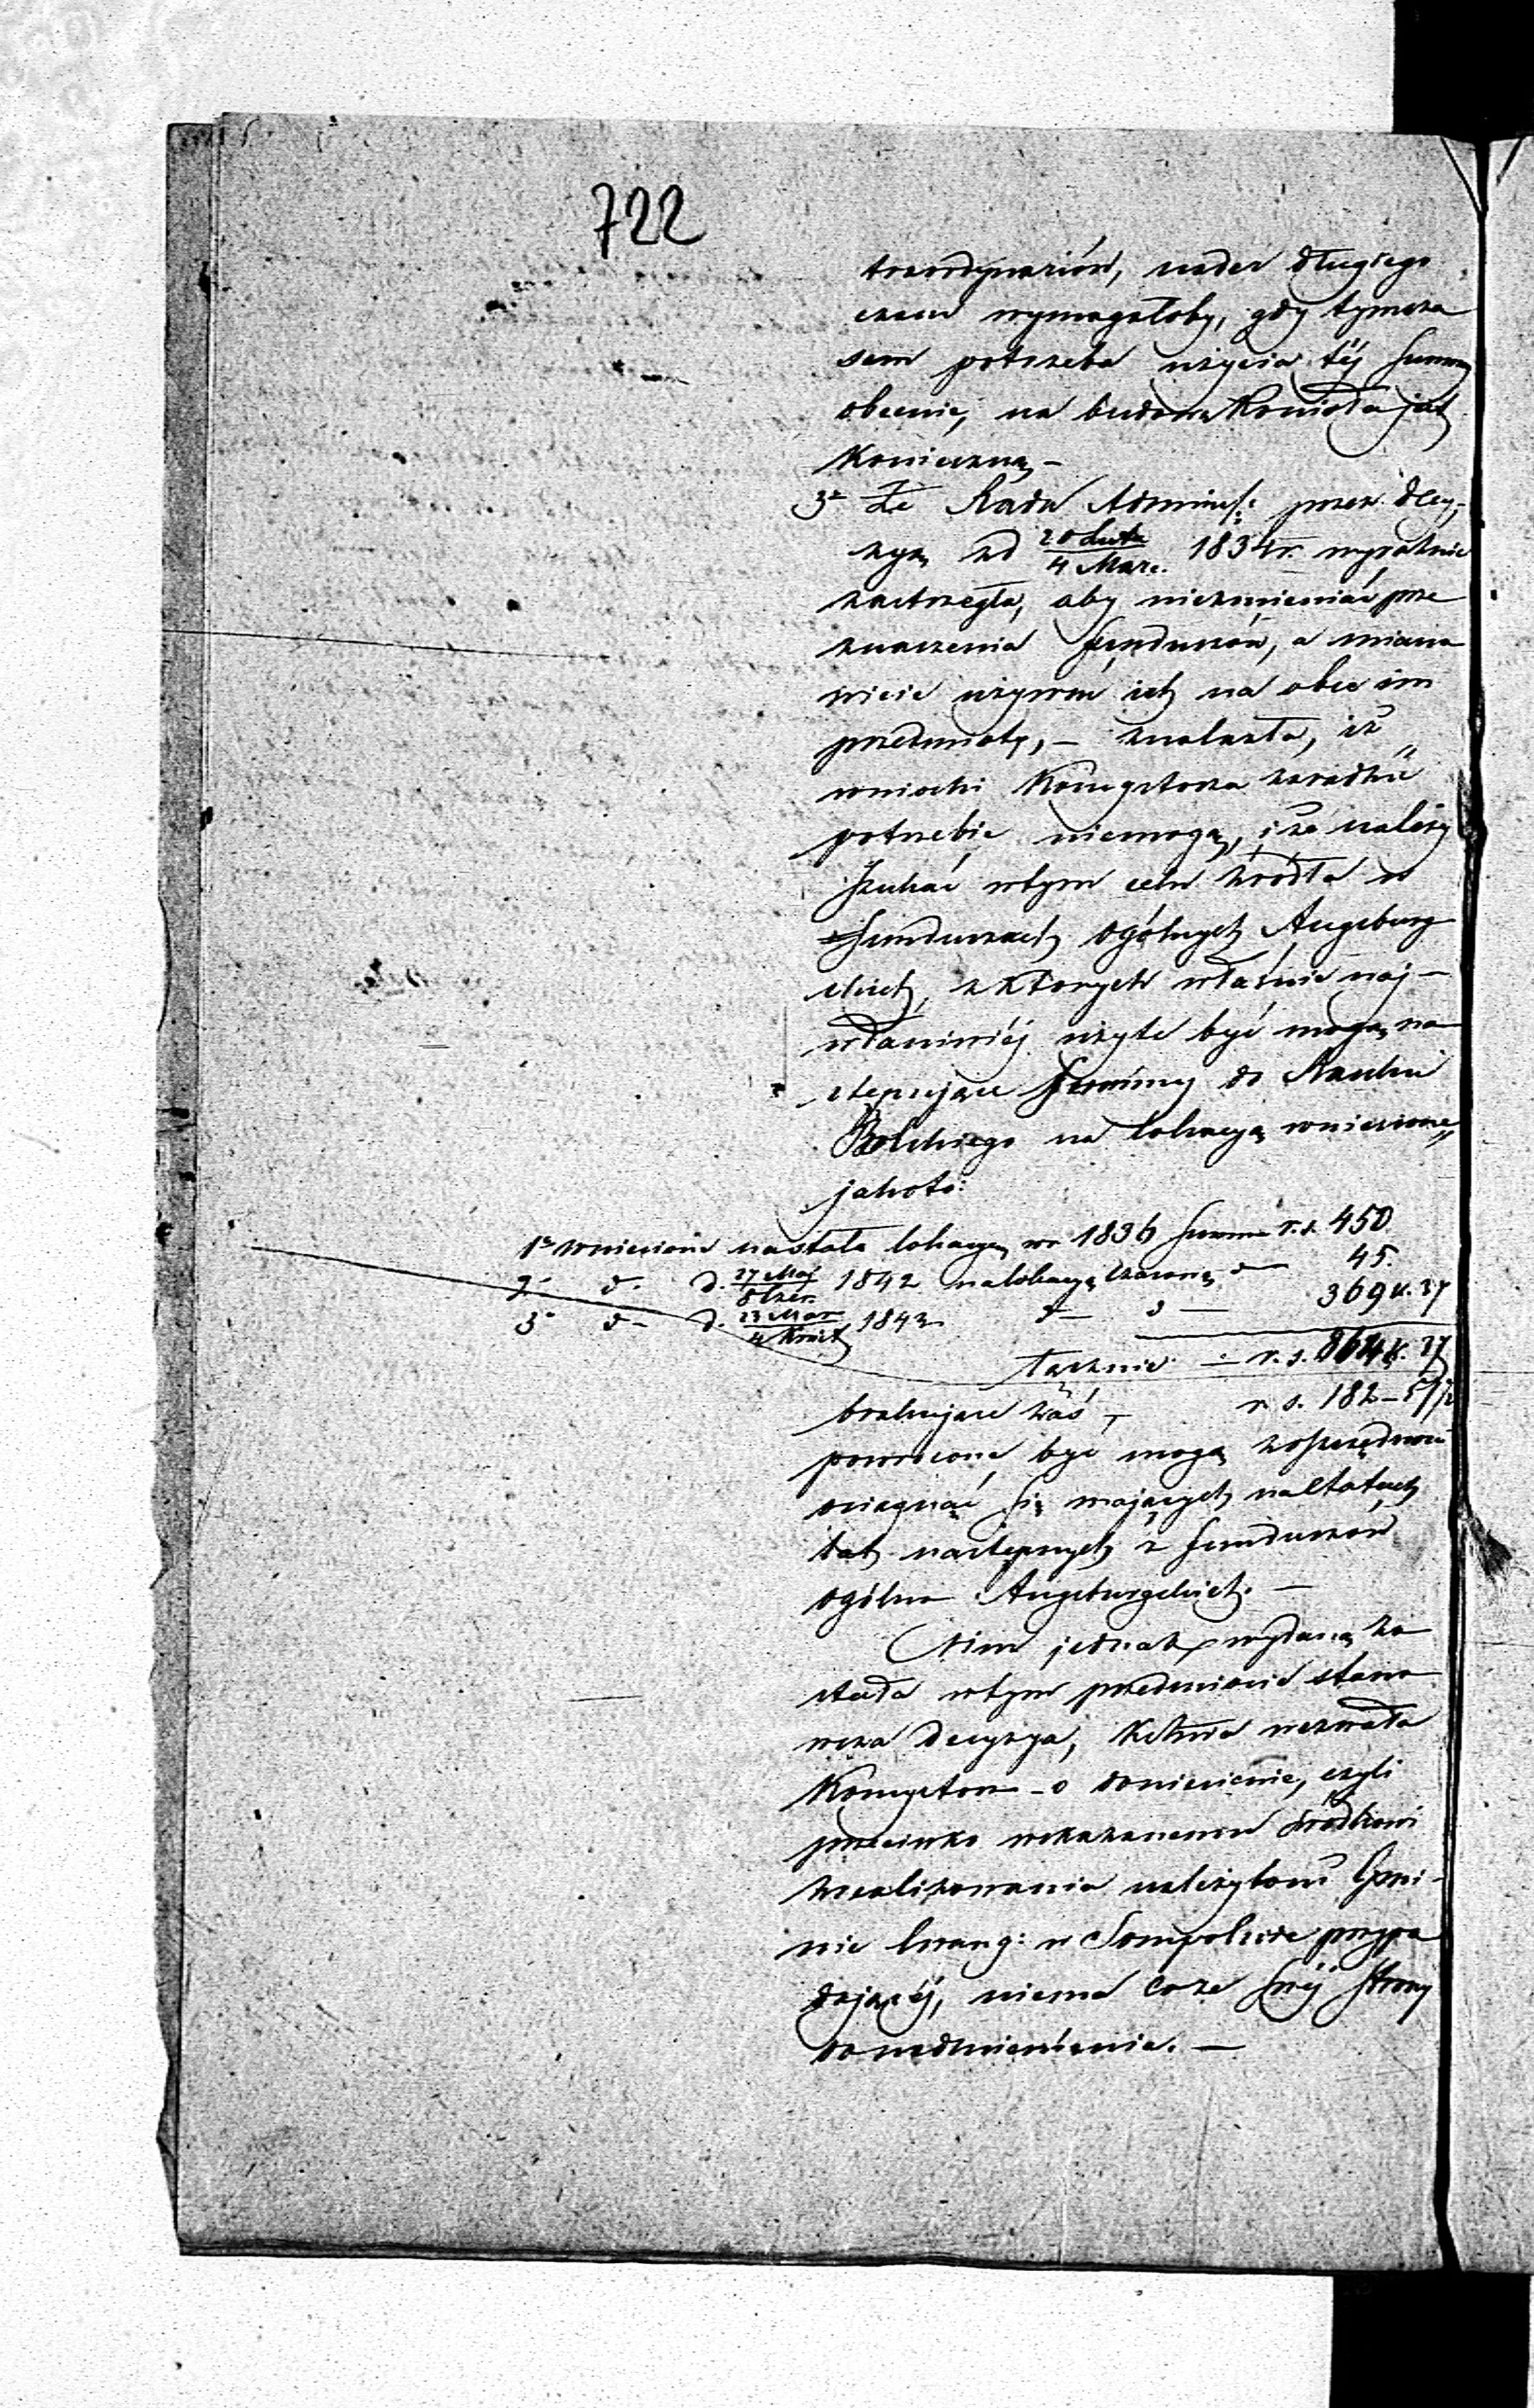 722
traordynarión, nader długiego
czasu wymagałoby, gdy tymcza
sem potrzeba użycia téj Summy
obecnie, na budowę Kościoła jest
Konieczną –
3º Że Rada Administ: przez decy-
zyą zd 20 Lute/4 Marc. 1834 r. wyraźnie
zastrzegła, aby niezmieniać prze
znaczenia funduszów, a miano
wicie używać ich na obce im
przedmioty, – znalazła, iż
wnioski Konsystorza zaradzić
potrzebie niemogą, i że należy
szukać wtym celu źródła w
funduszach ogólnych Augsburg
skich, z których właśnie naj-
właściwiéj użyte być mogą na
stępujące Summy do Banku
Polskiego na lokacyą wniesione,
jakoto:
1º wniesiona na stała lokacyą w r 1836 Summa r.s. 450
2º d– d. 27 Maj/8 Czer. 1842 na lokacyą czasową d– 45.
3º d– d. 23 Mar/4 Kwiet 1843 d– d– 369 k. 27
Łącznie – r. s. 864 k. 27
brakujące zaś – r. s. 182 – 57½
powrócone być mogą z oszczędności
osiągnąć się mających na Etatach
lat następnych z funduszów
ogólno Augsburgskich. –
Nim jednak wydaną zo
stanie wtym przedmiocie stano
wcza decyzya, wezwała
Konsystorz o doniesienie, czyli
przeciwko wskazanemu środkowi
zrealizowania należytości Gmi-
nie Ewang: w Sompolnie przypa
dającéj, niema co ze swéj strony
do nadmienienia. –